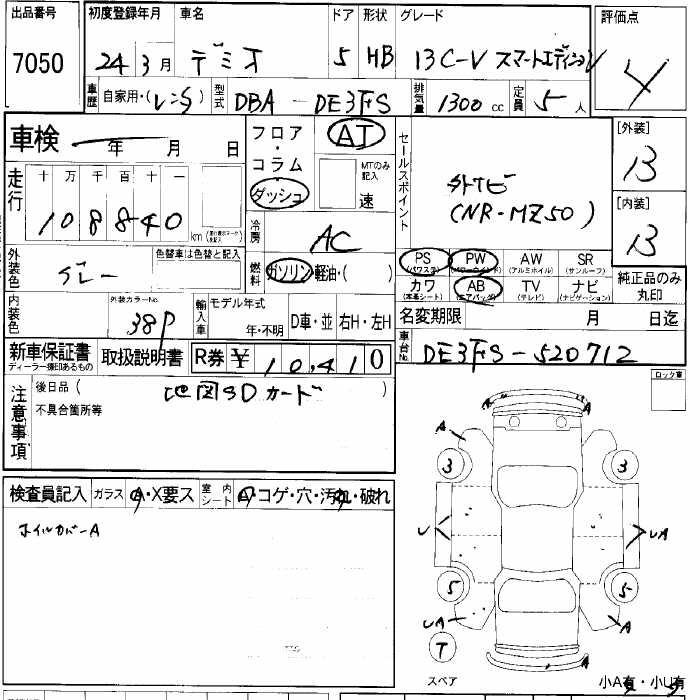 出品番号 初度登録年月 車名 ドア 形状 グレード 評価点
7050 24年3月 デミオ 5 HB 13C-V スマートエディションV 4
車歴 自家用・(レンタ) 型式 DBA - DE3FS 排気量 1300 cc 定員 5 人
車検 年 月 日
フロア・コラム ダッシュ AT MTのみ記入 速
セールスポイント
外ナビ
(NR-MZ50)
[外装]
B
[内装]
B
走行 十 万 千 百 十 一
108840 km
冷房 AC
外装色 グレー 色替車は色替と記入
燃料 ガソリン・軽油・( )
PS (パワステ) PW (パワーウインド) AW (アルミホイル) SR (サンルーフ)
カワ (本革シート) AB (エアバッグ) TV (テレビ) ナビ (ナビゲーション)
純正品のみ丸印
内装色 外装カラーNo. 38P 輸入車 モデル年式 年・不明 D車・並 右H・左H
名変期限 月 日迄
新車保証書 ディーラー捺印あるもの 取扱説明書 R券 ¥ 10,410
車台No. DE3FS-520712
注意事項 後日品 ( 地図SDカード )
不具合箇所等
ロック車
検査員記入 ガラス A・X要ス 室内シート A コゲ・穴・汚れ・破れ
ホイルカバーA
A A
A
3 3
U UA
5 5
UA A
T
スペア
小A有・小U有